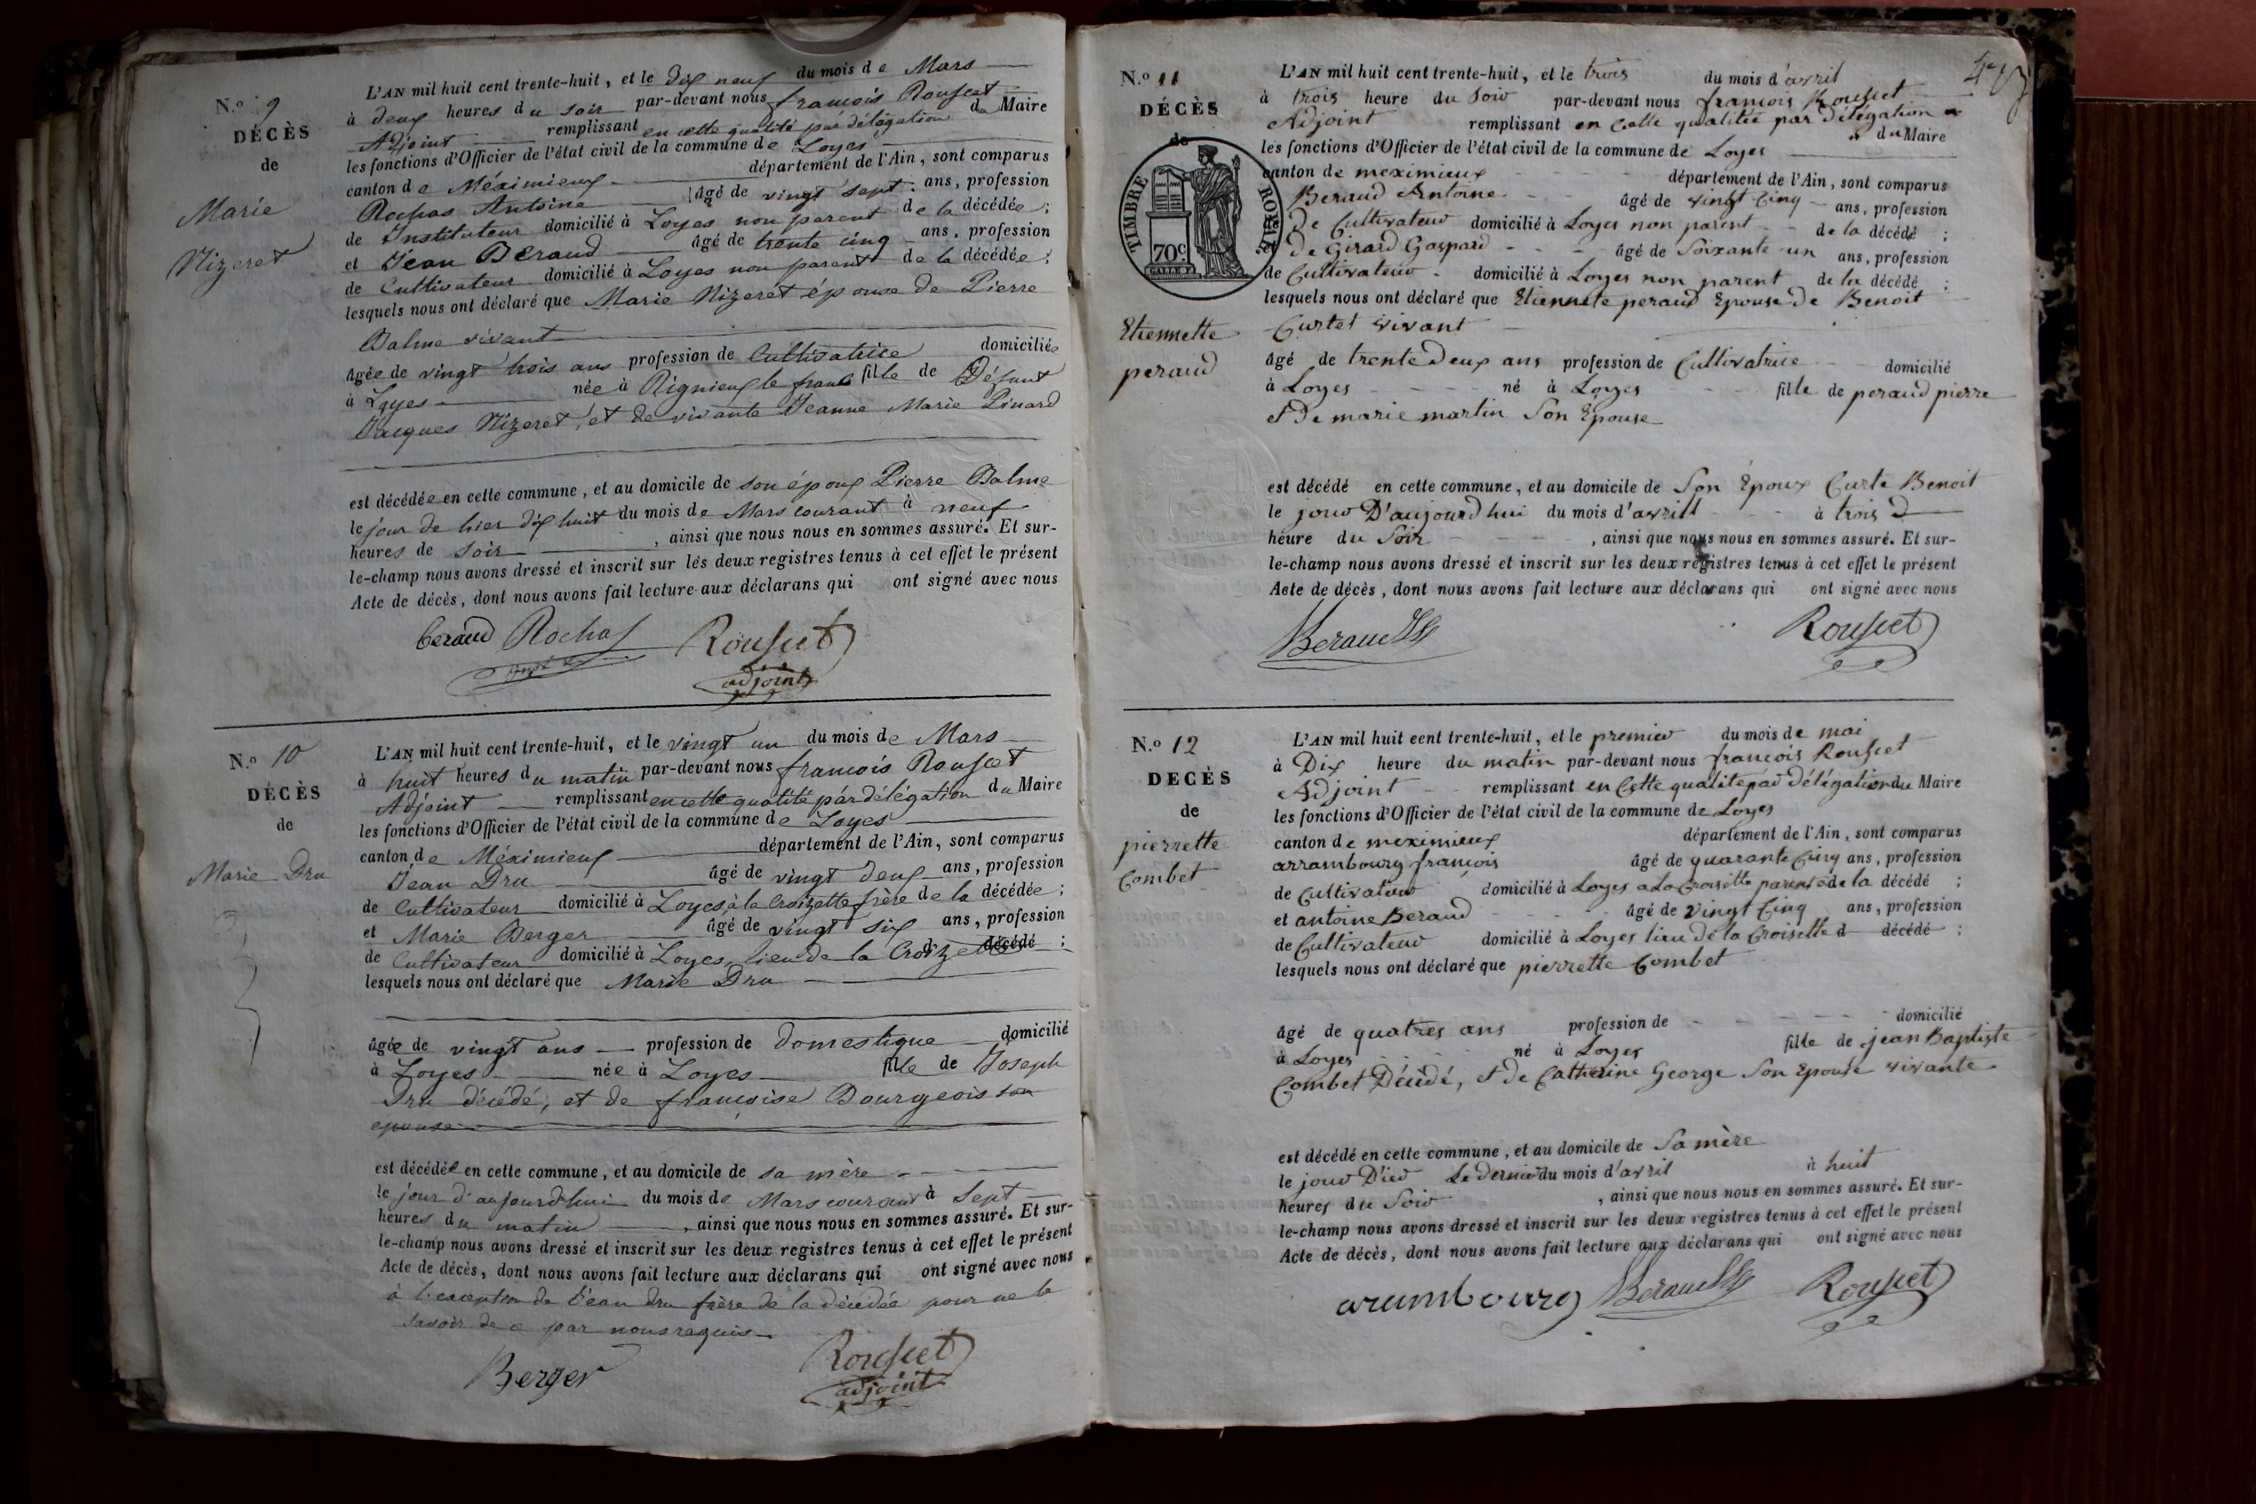 N.o 9
DÉCÈS
de
Marie
Nizeret
L'AN mil huit cent trente-huit, et le dix neuf du mois de Mars
à deux heures du soir par-devant nous francois Rousset
Adjoint remplissant en cette qualité par délégation du Maire
les fonctions d'Officier de l'état civil de la commune de Loyes
canton de Méximieux département de l'Ain, sont comparus
Rochas Antoine âgé de vingt sept ans, profession
de Instituteur domicilié à Loyes non parent de la décédée;
et Jean Beraud âgé de trente cinq ans, profession
de Cultivateur domicilié à Loyes non parent de la décédée;
lesquels nous ont déclaré que Marie Nizeret épouse de Pierre
Balme vivant
âgée de vingt trois ans profession de Cultivatrice domiciliée
à Loyes née à Rignieux le franc fille de Défunt
Jacques Nizeret, et de vivante Jeanne Marie Pinard
est décédée en cette commune, et au domicile de son époux Pierre Balme
le jour de hier dix huit du mois de Mars courant à neuf
heures de soir, ainsi que nous nous en sommes assuré. Et sur-
le-champ nous avons dressé et inscrit sur les deux registres tenus à cet effet le présent
Acte de décès, dont nous avons fait lecture aux déclarans qui ont signé avec nous
beraud Rochas Rousset
adjoint
N.o 10
DÉCÈS
de
Marie Dru
L'AN mil huit cent trente-huit, et le vingt un du mois de Mars
à huit heures du matin par-devant nous francois Rousset
Adjoint remplissant en cette qualité par délégation du Maire
les fonctions d'Officier de l'état civil de la commune de Loyes
canton de Méximieux département de l'Ain, sont comparus
Jean Dru âgé de vingt deux ans, profession
de Cultivateur domicilié à Loyes, à la Croizette frère de la décédée;
et Marie Berger âgé de vingt six ans, profession
de Cultivateur domicilié à Loyes, lieu de la Croizette d décédé;
lesquels nous ont déclaré que Marie Dru
âgée de vingt ans profession de domestique domicilié
à Loyes née à Loyes fille de Joseph
Dru décédé, et de francoise Bourgeois son
epouse
est décédée en cette commune, et au domicile de sa mère
le jour d'aujourd'hui du mois de Mars courant à sept
heures du matin, ainsi que nous nous en sommes assuré. Et sur-
le-champ nous avons dressé et inscrit sur les deux registres tenus à cet effet le présent
Acte de décès, dont nous avons fait lecture aux déclarans qui ont signé avec nous
à l'exception de Jean dru frère de la décédée pour ne le
savoir de ce par nous requis
Berger Rousset
adjoint
N.o 11
DÉCÈS
de
TIMBRE ROYAL
70c
Etiennette
peraud
L'AN mil huit cent trente-huit, et le trois du mois d'avril
à trois heure du Soir par-devant nous francois Rousset
Adjoint remplissant en Cette qualitée par délégation
du Maire
les fonctions d'Officier de l'état civil de la commune de Loyes
canton de meximieux département de l'Ain, sont comparus
Beraud Antoine âgé de vingt Cinq ans, profession
De Cultivateur domicilié à Loyes non parent de la décédé;
et De Girard Gaspard âgé de Soixante un ans, profession
de Cultivateur domicilié à Loyes non parent de la décédé;
lesquels nous ont déclaré que Etiennette peraud Epouse de Benoit
Curtet vivant
âgé de trente Deux ans profession de Cultivatrice domicilié
à Loyes né à Loyes fille de peraud pierre
et De marie martin Son Epouse
est décédé en cette commune, et au domicile de Son Epoux Curte Benoit
le jour D'aujourd'hui du mois d'avrill à trois
heure du Soir, ainsi que nous nous en sommes assuré. Et sur-
le-champ nous avons dressé et inscrit sur les deux registres tenus à cet effet le présent
Acte de décès, dont nous avons fait lecture aux déclarans qui ont signé avec nous
Beraud Rousset
N.o 12
DÉCÈS
de
pierrette
Combet
L'AN mil huit cent trente-huit, et le premier du mois de mai
à Dix heure du matin par-devant nous francois Rousset
Adjoint remplissant en Cette qualité par délégation du Maire
les fonctions d'Officier de l'état civil de la commune de Loyes
canton de meximieux département de l'Ain, sont comparus
arrambourg françois âgé de quarante Cinq ans, profession
de Cultivateur domicilié à Loyes a La Croisette parent de la décédé;
et antoine Beraud âgé de vingt Cinq ans, profession
de Cultivateur domicilié à Loyes lieu de la Croisette d décédé;
lesquels nous ont déclaré que pierrette Combet
âgé de quatres ans profession de domicilié
à Loyes né à Loyes fille de jean Baptiste
Combet Décédé, et de Catherine George Son Epouse vivante
est décédé en cette commune, et au domicile de Sa mère
le jour D'ier Le dernier du mois d'avril à huit
heures du Soir, ainsi que nous nous en sommes assuré. Et sur-
le-champ nous avons dressé et inscrit sur les deux registres tenus à cet effet le présent
Acte de décès, dont nous avons fait lecture aux déclarans qui ont signé avec nous
arambourg Beraud Rousset